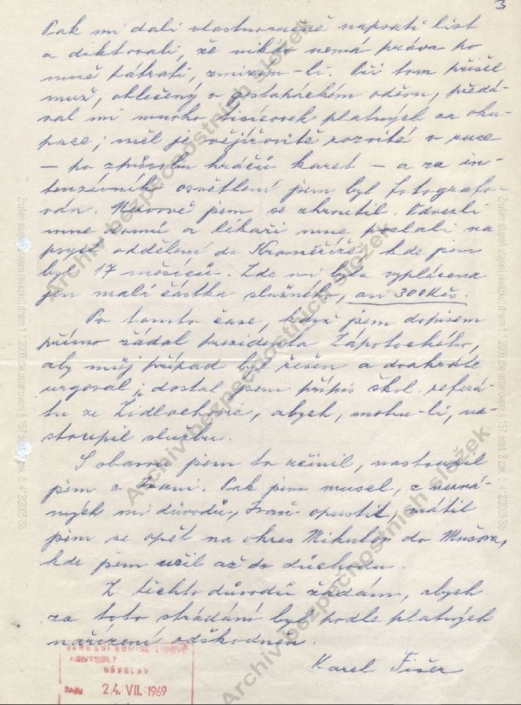 3
Pak mi dali vlastnoručně napsati list
a diktovali, že nikdo nemá práva po
mně pátrati, zmizím-li. Při tom přišel
muž, oblečený v gestapáckém oděvu, předá-
val mi mnoho tisícovek platných za oku-
pace; měl je vějířovitě rozvité v ruce
— po způsobu hráčů karet — a za in-
tenzívního osvětlení jsem byl fotografo-
ván. Nervově jsem se zhroutil. Odvezli
mne domů a lékaři mne poslali na
psych. oddělení do Kroměříže, kde jsem
byl 17 měsíců. Zde mi byla vyplácena
jen malá částka služného, asi 300 Kčs.
Po tomto čase, když jsem dopisem
přímo žádal presidenta Zápotockého,
aby můj případ byl řešen a dvakráte
urgoval, dostal jsem přípis škol. referá-
tu ze Židlochovic, abych, mohu-li, na-
stoupil službu.
S obavou jsem to učinil, nastoupil
jsem v . Pak jsem musel, z nezná-
mých mi důvodů, opustit, vrátil
jsem se opět na okres Mikulov do Mušova,
kde jsem učil až do důchodu.
Z těchto důvodů žádám, abych
za toto strádání byl podle platných
nařízení odškodněn.
Karel Fišer
24. VII. 1969
Archiv bezpečnostních složek
Archiv bezpečnostních složek
Archiv bezpečnostních složek